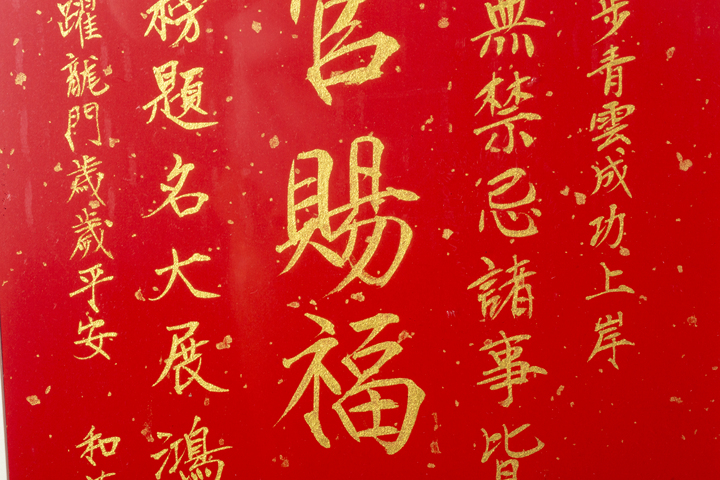 步青雲成功上岸
無禁忌諸事皆
官賜福
榜題名大展鴻
躍龍門歲歲平安 和